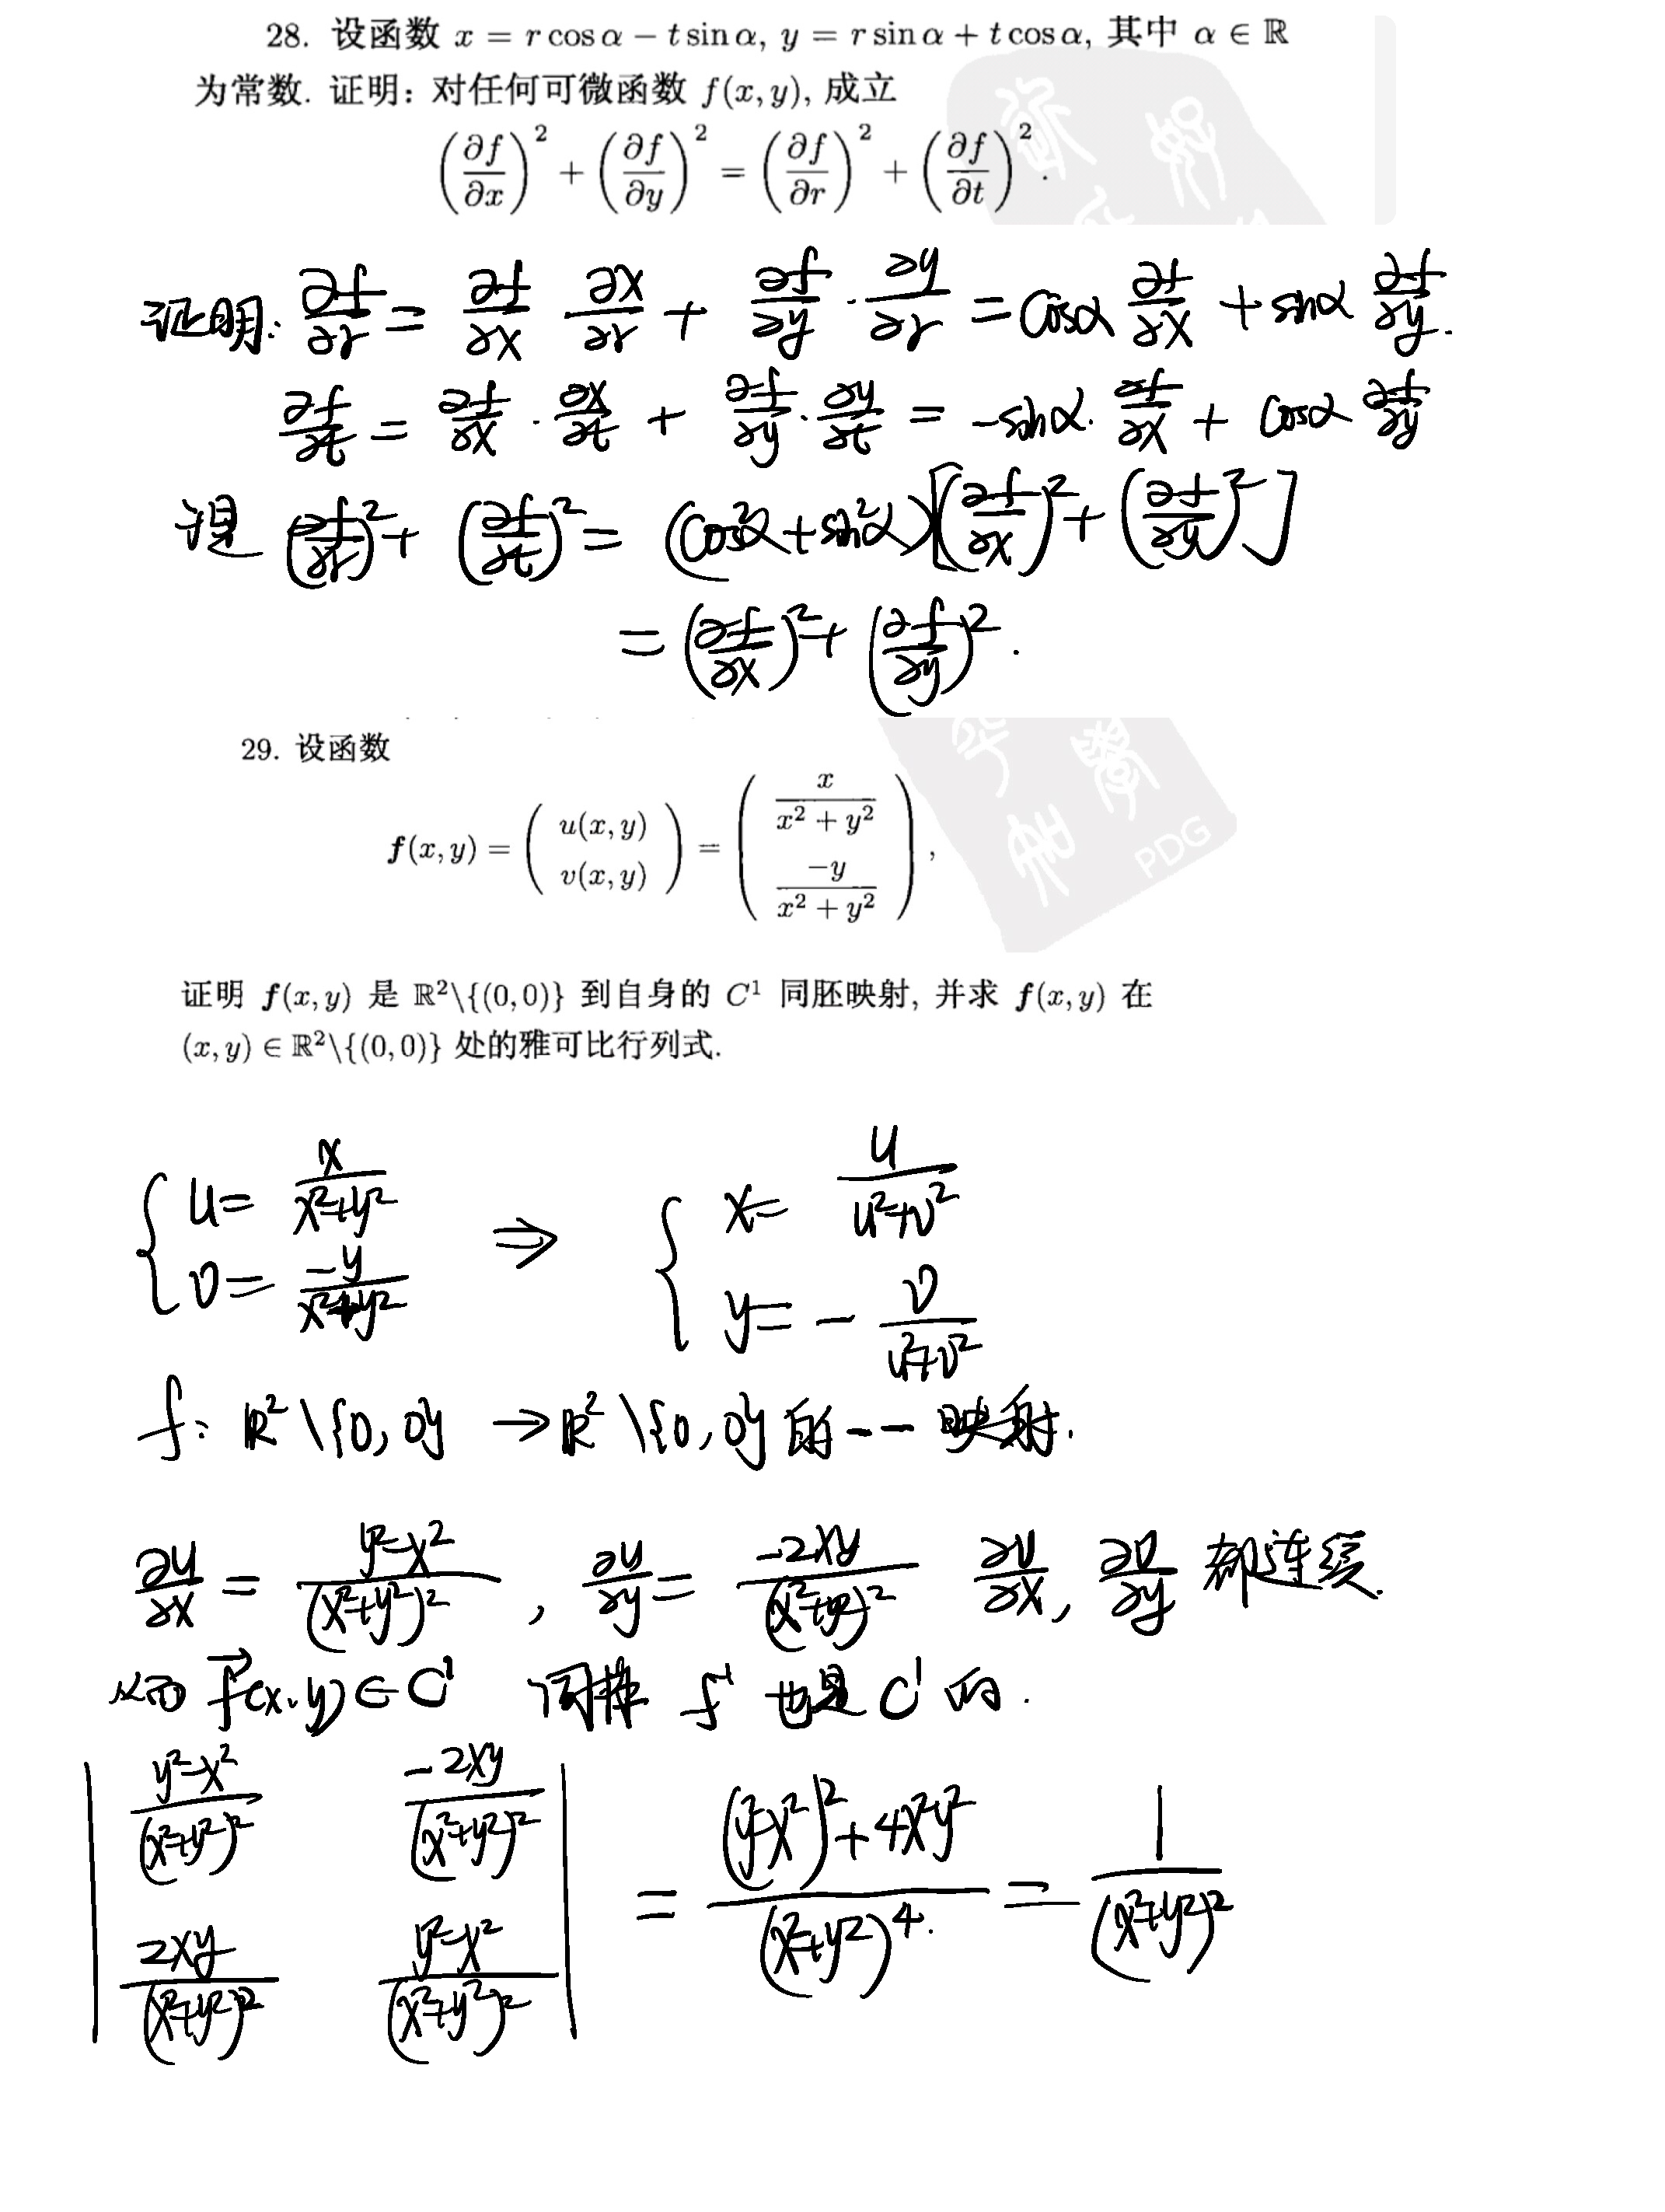 28. 设函数 x = r cos α − t sin α, y = r sin α + t cos α, 其中 α ∈ ℝ
为常数. 证明: 对任何可微函数 f(x, y), 成立
(∂f/∂x)² + (∂f/∂y)² = (∂f/∂r)² + (∂f/∂t)².
证明: ∂f/∂r = ∂f/∂x ∂x/∂r + ∂f/∂y · ∂y/∂r = cosα ∂f/∂x + sinα ∂f/∂y.
∂f/∂t = ∂f/∂x · ∂x/∂t + ∂f/∂y · ∂y/∂t = -sinα · ∂f/∂x + cosα ∂f/∂y
(∂f/∂r)² + (∂f/∂t)² = (cos²α + sin²α)[(∂f/∂x)² + (∂f/∂y)²]
= (∂f/∂x)² + (∂f/∂y)².
29. 设函数
f(x, y) = ( u(x, y) v(x, y) ) = ( x/(x² + y²) −y/(x² + y²) ),
PDG
证明 f(x, y) 是 ℝ²\{(0,0)} 到自身的 C¹ 同胚映射, 并求 f(x, y) 在
(x, y) ∈ ℝ²\{(0,0)} 处的雅可比行列式.
{ u = x/(x²+y²) ⇒ { x = u/(u²+v²)
v = -y/(x²+y²) y = - v/(u²+v²)
f: ℝ²\{0,0} → ℝ²\{0,0} 的一一映射.
∂u/∂x = (y²-x²)/(x²+y²)², ∂u/∂y = -2xy/(x²+y²)² ∂v/∂x, ∂v/∂y 都连续.
从而 f(x,y) ∈ C¹ 同样 f⁻¹ 也是 C¹ 的.
| (y²-x²)/(x²+y²)² -2xy/(x²+y²)² |
| 2xy/(x²+y²)² (y²-x²)/(x²+y²)² | = ((y²-x²)² + 4x²y²)/(x²+y²)⁴ = 1/(x²+y²)²